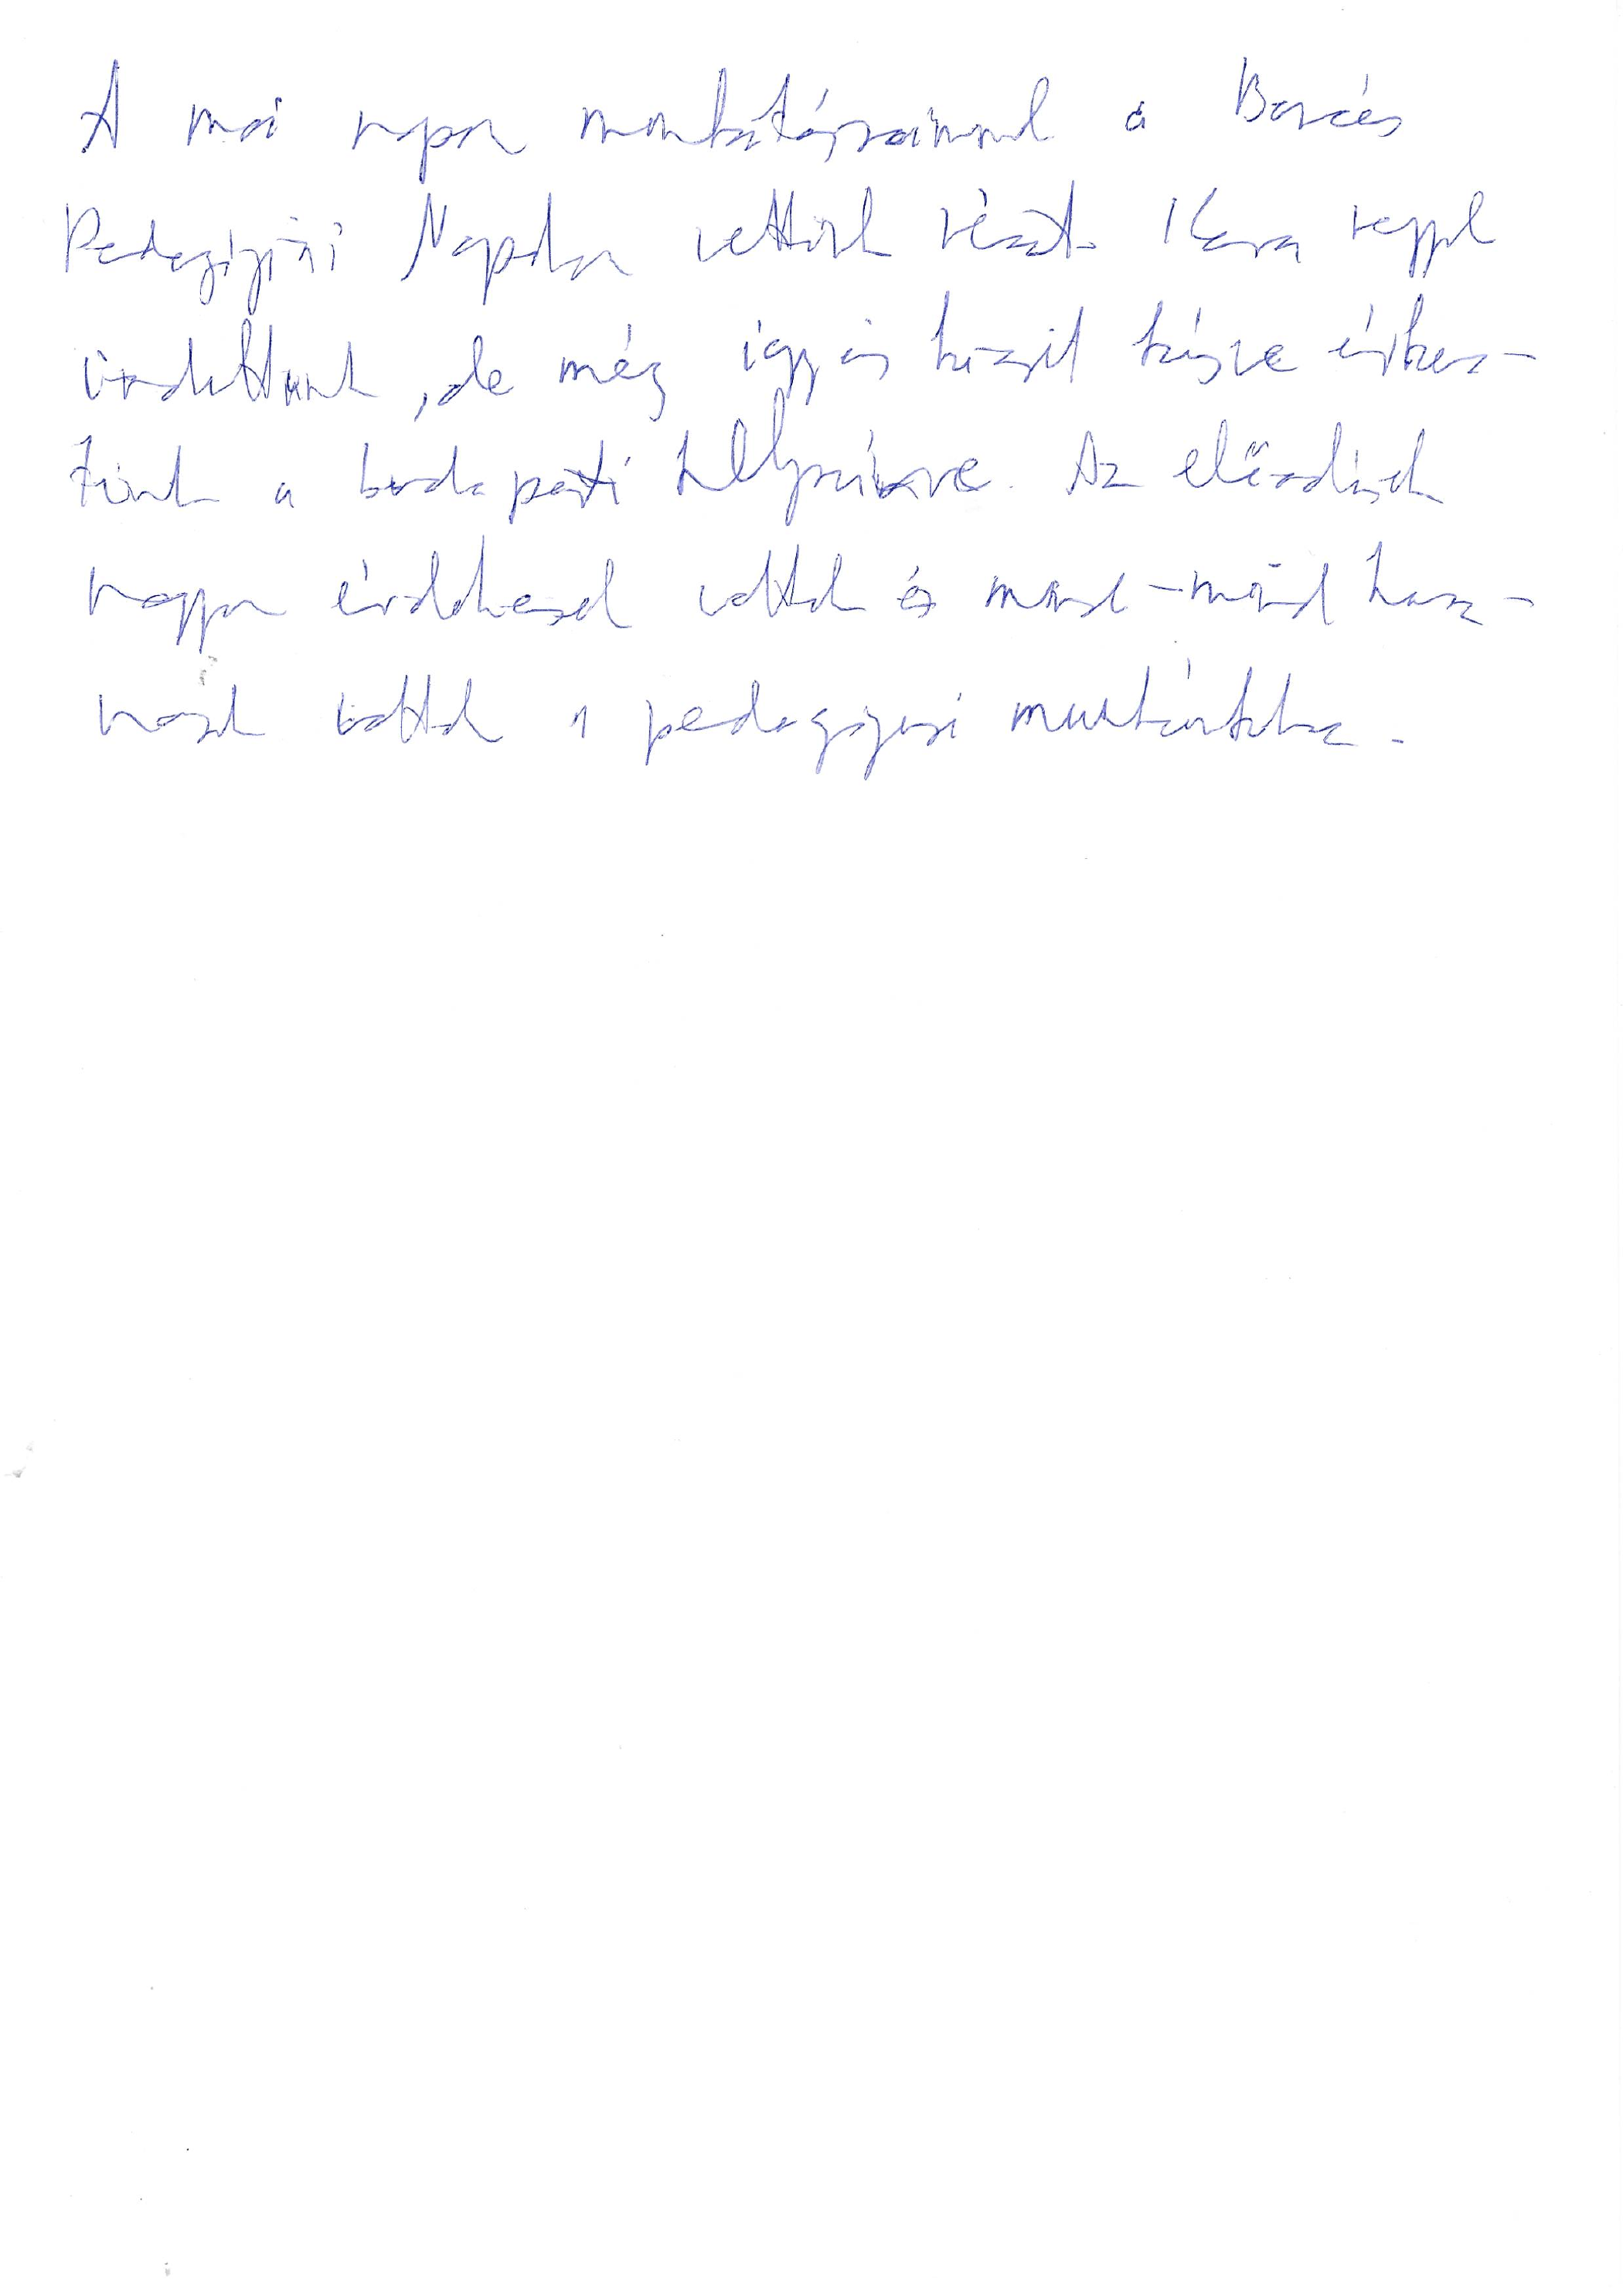 A mai napon munkatársaimmal a Bárczis
Pedagógiai Napokon vettünk részt. Kora reggel
indultunk, de még így is kicsit késve érkez-
tünk a budapesti helyszínre. Az előadások
nagyon érdekesek voltak és mind-mind hasz-
nosak voltak a pedagógusi munkánkba.